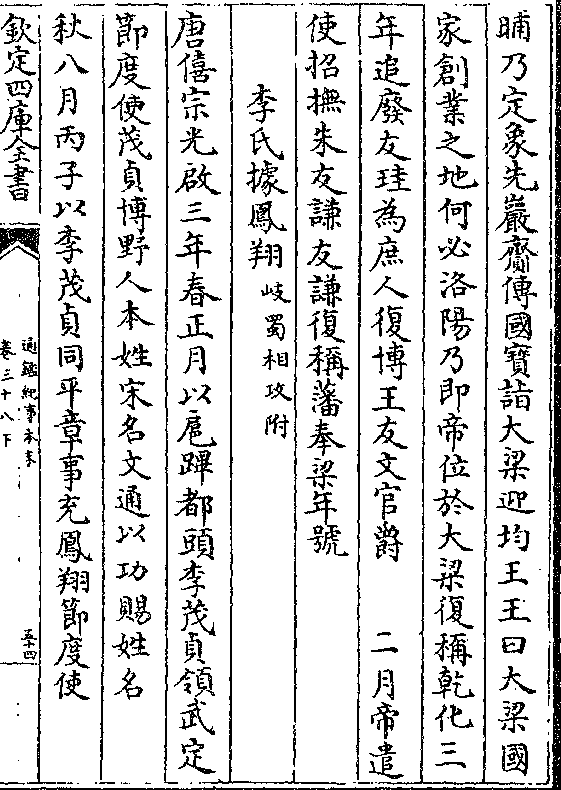 晡乃定象先巖齎傳國寶詣大梁迎均王王曰大梁國
家創業之地何必洛陽乃即帝位於大梁復稱乾化三
年追廢友珪為庶人復博王友文官爵　二月帝遣
使招撫朱友謙友謙復稱藩奉梁年號
李氏據鳳翔　岐蜀相攻附
唐僖宗光啟三年春正月以扈蹕都頭李茂貞領武定
節度使茂貞博野人本姓宋名文通以功賜姓名
秋八月丙子以李茂貞同平章事充鳳翔節度使
欽定四庫全書
通鑑紀事本末
卷三十八下
五十四